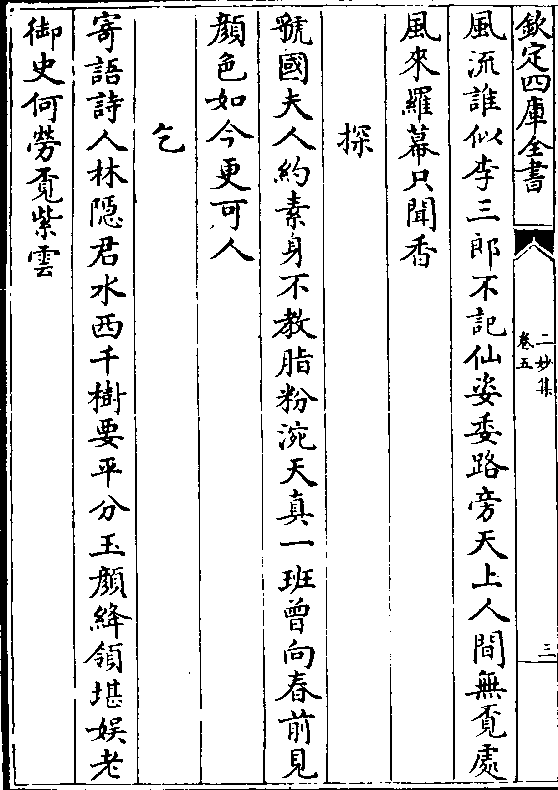 欽定四庫全書
二妙集
卷五
三
風流誰似李三郎不記仙姿委路旁天上人間無覔處
風來羅幕只聞香
探
虢國夫人約素身不教脂粉涴天真一班曾向春前見
顔色如今更可人
乞
寄語詩人林隠君水西千樹要平分玉顔絳領堪娱老
御史何勞覔紫雲